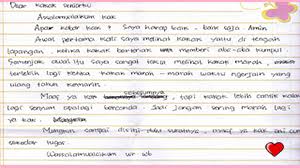 Dear kakak seniorku
Assalamualaikum kak
Apa kabar kak ? saya harap kak baik saja Amin
Awal pertama kali saya melihat kakak yaitu di tengah
lapangan, ketika kakak memberi aba-aba kumpul.
Semenjak awal itu saya sangat takut melihat kakak marah,
terlebih lagi ketika kakak marah-marah waktu ngerjain yang
ulang tahun kemarin.
Maaf ya kak sebelumnya, tapi kakak lebih cantik kalau
lagi senyum apalagi bercanda. Jadi jangan sering marah lagi
ya kak.
Mungkin sampai disini dulu suratnya, ya kak
sekedar lugas.
Wassalamualaikum wr wb